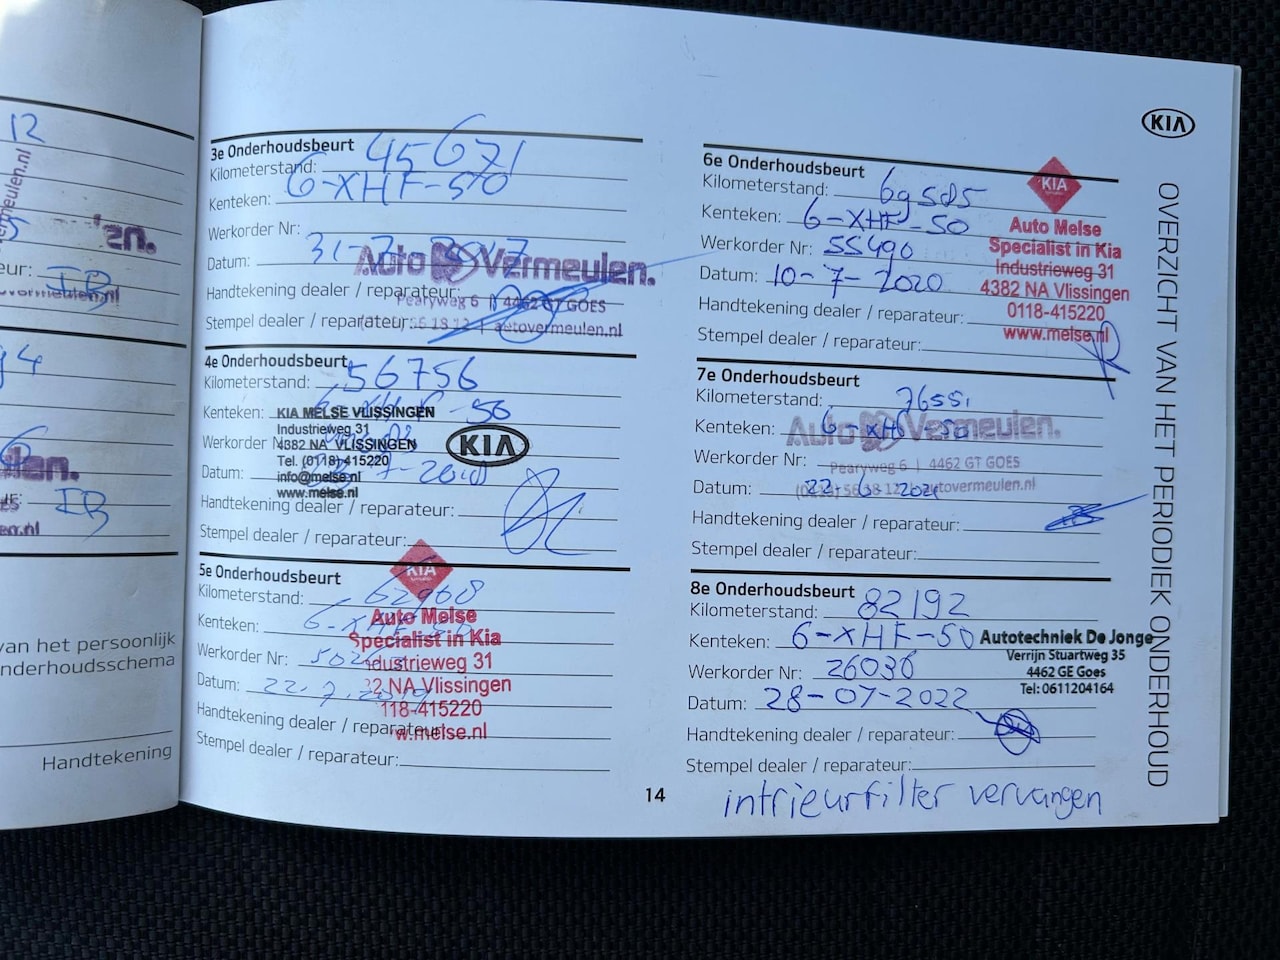 12
meulen.nl
en.
eur: IB
94
len.
IB
en.nl
van het persoonlijk
nderhoudsschema
Handtekening
3e Onderhoudsbeurt
Kilometerstand: 45671
Kenteken: 6-XHF-50
Werkorder Nr:
Datum: 31-7-2017
Auto Vermeulen.
Handtekening dealer / reparateur:
Pearyweg 6 | 4462 GT GOES
Stempel dealer / reparateur:
autovermeulen.nl
4e Onderhoudsbeurt
Kilometerstand: 56756
Kenteken: 50
Werkorder
Datum:
KIA MELSE VLISSINGEN
Industrieweg 31
4382 NA VLISSINGEN
Tel. (0118)-415220
info@melse.nl
www.melse.nl
KIA
Handtekening dealer / reparateur:
Stempel dealer / reparateur:
5e Onderhoudsbeurt
Kilometerstand: 62968
Kenteken: 6-XHF
Werkorder Nr:
Datum: 22.7.
KIA
Auto Melse
Specialist in Kia
dustrieweg 31
2 NA Vlissingen
118-415220
w.melse.nl
Handtekening dealer / reparateur:
Stempel dealer / reparateur:
14
KIA
6e Onderhoudsbeurt
Kilometerstand: 69585
Kenteken: 6-XHF-50
Werkorder Nr: 55490
Datum: 10-7-2020
Handtekening dealer / reparateur:
Stempel dealer / reparateur:
KIA
Auto Melse
Specialist in Kia
Industrieweg 31
4382 NA Vlissingen
0118-415220
www.melse.nl
7e Onderhoudsbeurt
Kilometerstand: 76551
Kenteken: 6-XHF-50
Auto Vermeulen.
Werkorder Nr:
Pearyweg 6 | 4462 GT GOES
Datum: 22 6 2021
autovermeulen.nl
Handtekening dealer / reparateur:
Stempel dealer / reparateur:
8e Onderhoudsbeurt
Kilometerstand: 82192
Kenteken: 6-XHF-50
Werkorder Nr: 26036
Datum: 28-07-2022
Autotechniek De Jonge
Verrijn Stuartweg 35
4462 GE Goes
Tel: 0611204164
Handtekening dealer / reparateur:
Stempel dealer / reparateur:
intrieurfilter vervangen
OVERZICHT VAN HET PERIODIEK ONDERHOUD